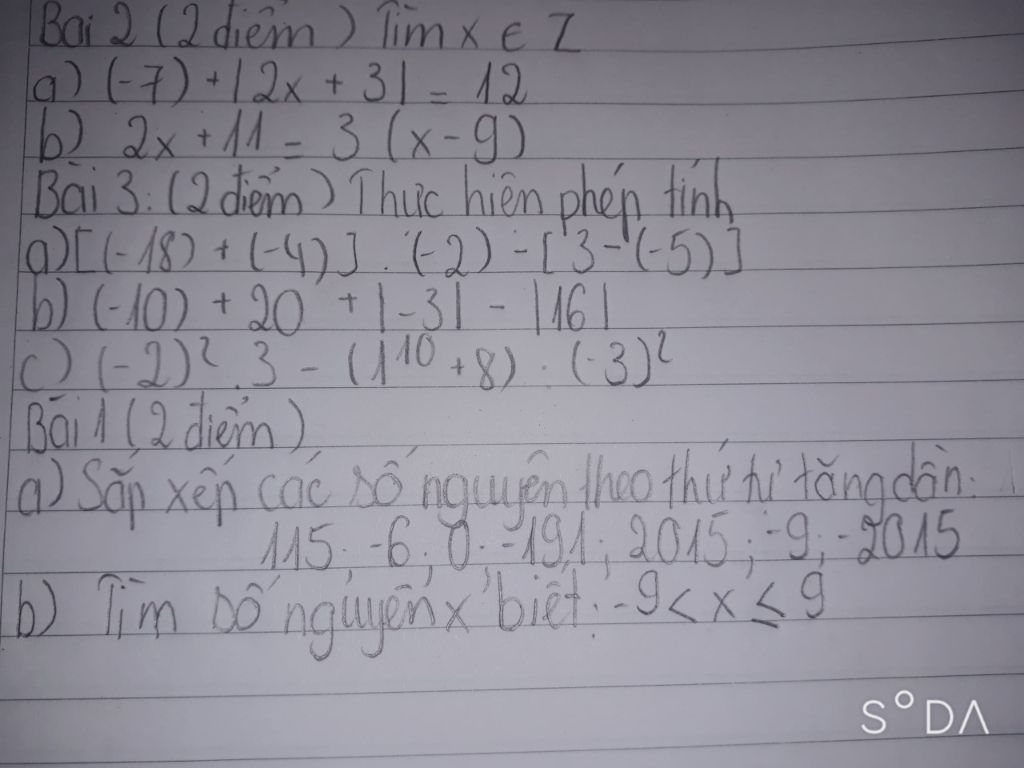 Bài 2 (2 điểm) Tìm x ∈ Z
a) (-7) + |2x + 3| = 12
b) 2x + 11 = 3 (x - 9)
Bài 3: (2 điểm) Thực hiện phép tính
a) [(-18) + (-4)] . (-2) - [3 - (-5)]
b) (-10) + 20 + |-3| - |16|
c) (-2)² . 3 - (1¹⁰ + 8) . (-3)²
Bài 1 (2 điểm)
a) Sắp xếp các số nguyên theo thứ tự tăng dần:
115; -6; 0; -191; 2015; -9; -2015
b) Tìm số nguyên x biết: -9 < x ≤ 9
S°DA